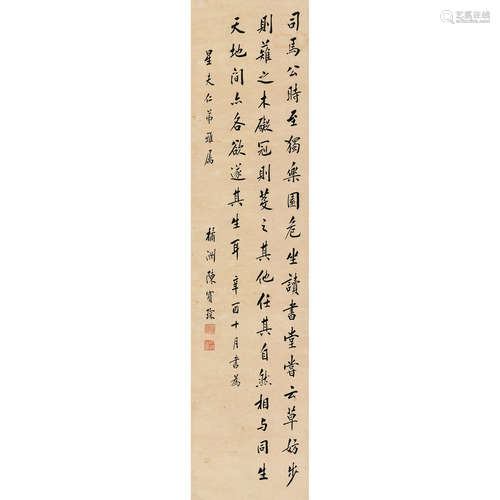 司馬公時至獨樂園危坐讀書堂嘗云草妨步
則薙之木礙冠則芟之其他任其自然相与同生
天地间亦各欲遂其生耳 辛酉十月書為
星夫仁弟雅属
橘洲陳寳琛